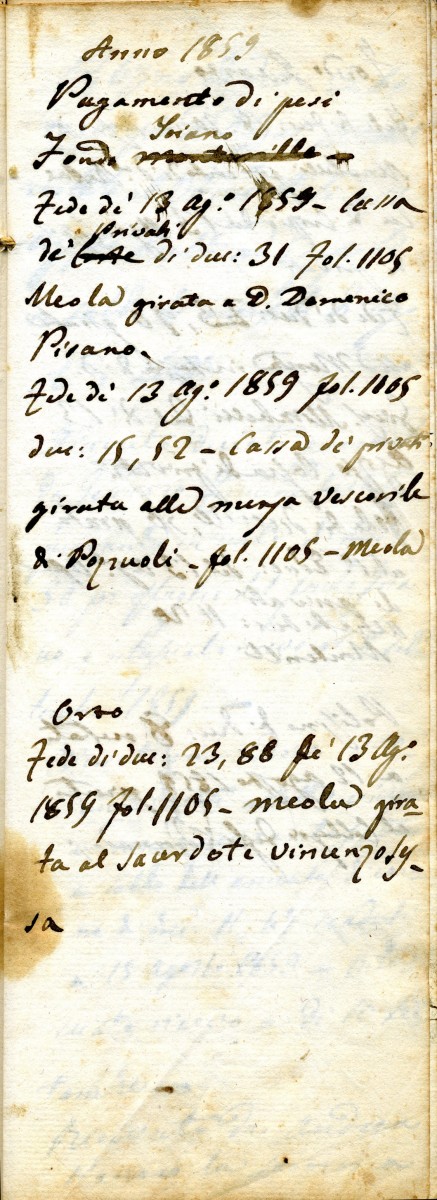 Anno 1859
Pagamento di pesi
Toiano
Fondo
Fede de' 13 Ag.° 1859 - Cassa
privati
de' Corte di duc: 31 fol. 1105
Meola girata a D. Domenico
Pisano.
Fede de' 13 Ag.° 1859 fol. 1105
duc: 15,52 - Cassa di privati
girata alla mensa Vescovile
di Pozzuoli - fol. 1105 - Meola
Orto
Fede di duc: 23,88 de' 13 Ag.°
1859 fol. 1105 - Meola gira-
ta al Sacerdote Vincenzo
sa